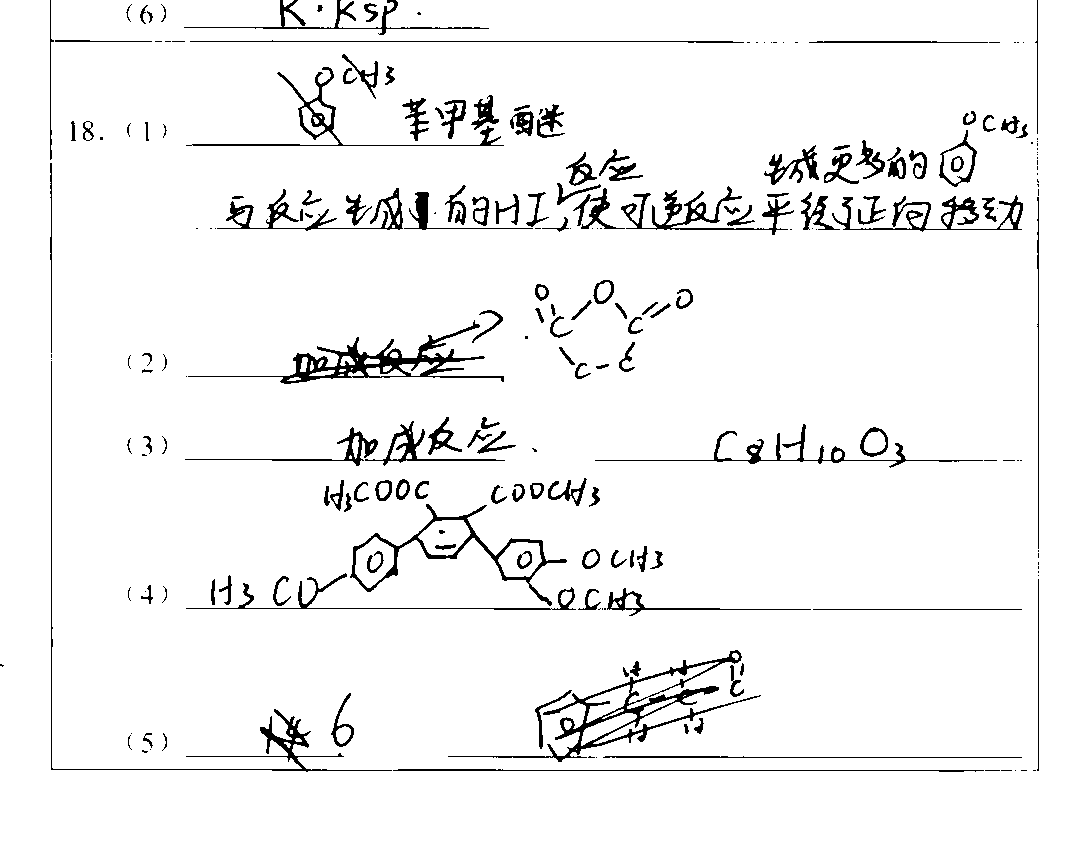 (6) K·Ksp.
OCH3
18. (1) 苯甲基醚
OCH3
反应 生成更多的
与反应生成的HI,使可逆反应平衡正向移动
O O O
C C
(2) 加成反应
C-C
(3) 加成反应. C8H10O3
H3COOC COOCH3
OCH3
(4) H3CO OCH3
H H O
C C C
(5) 6
H H